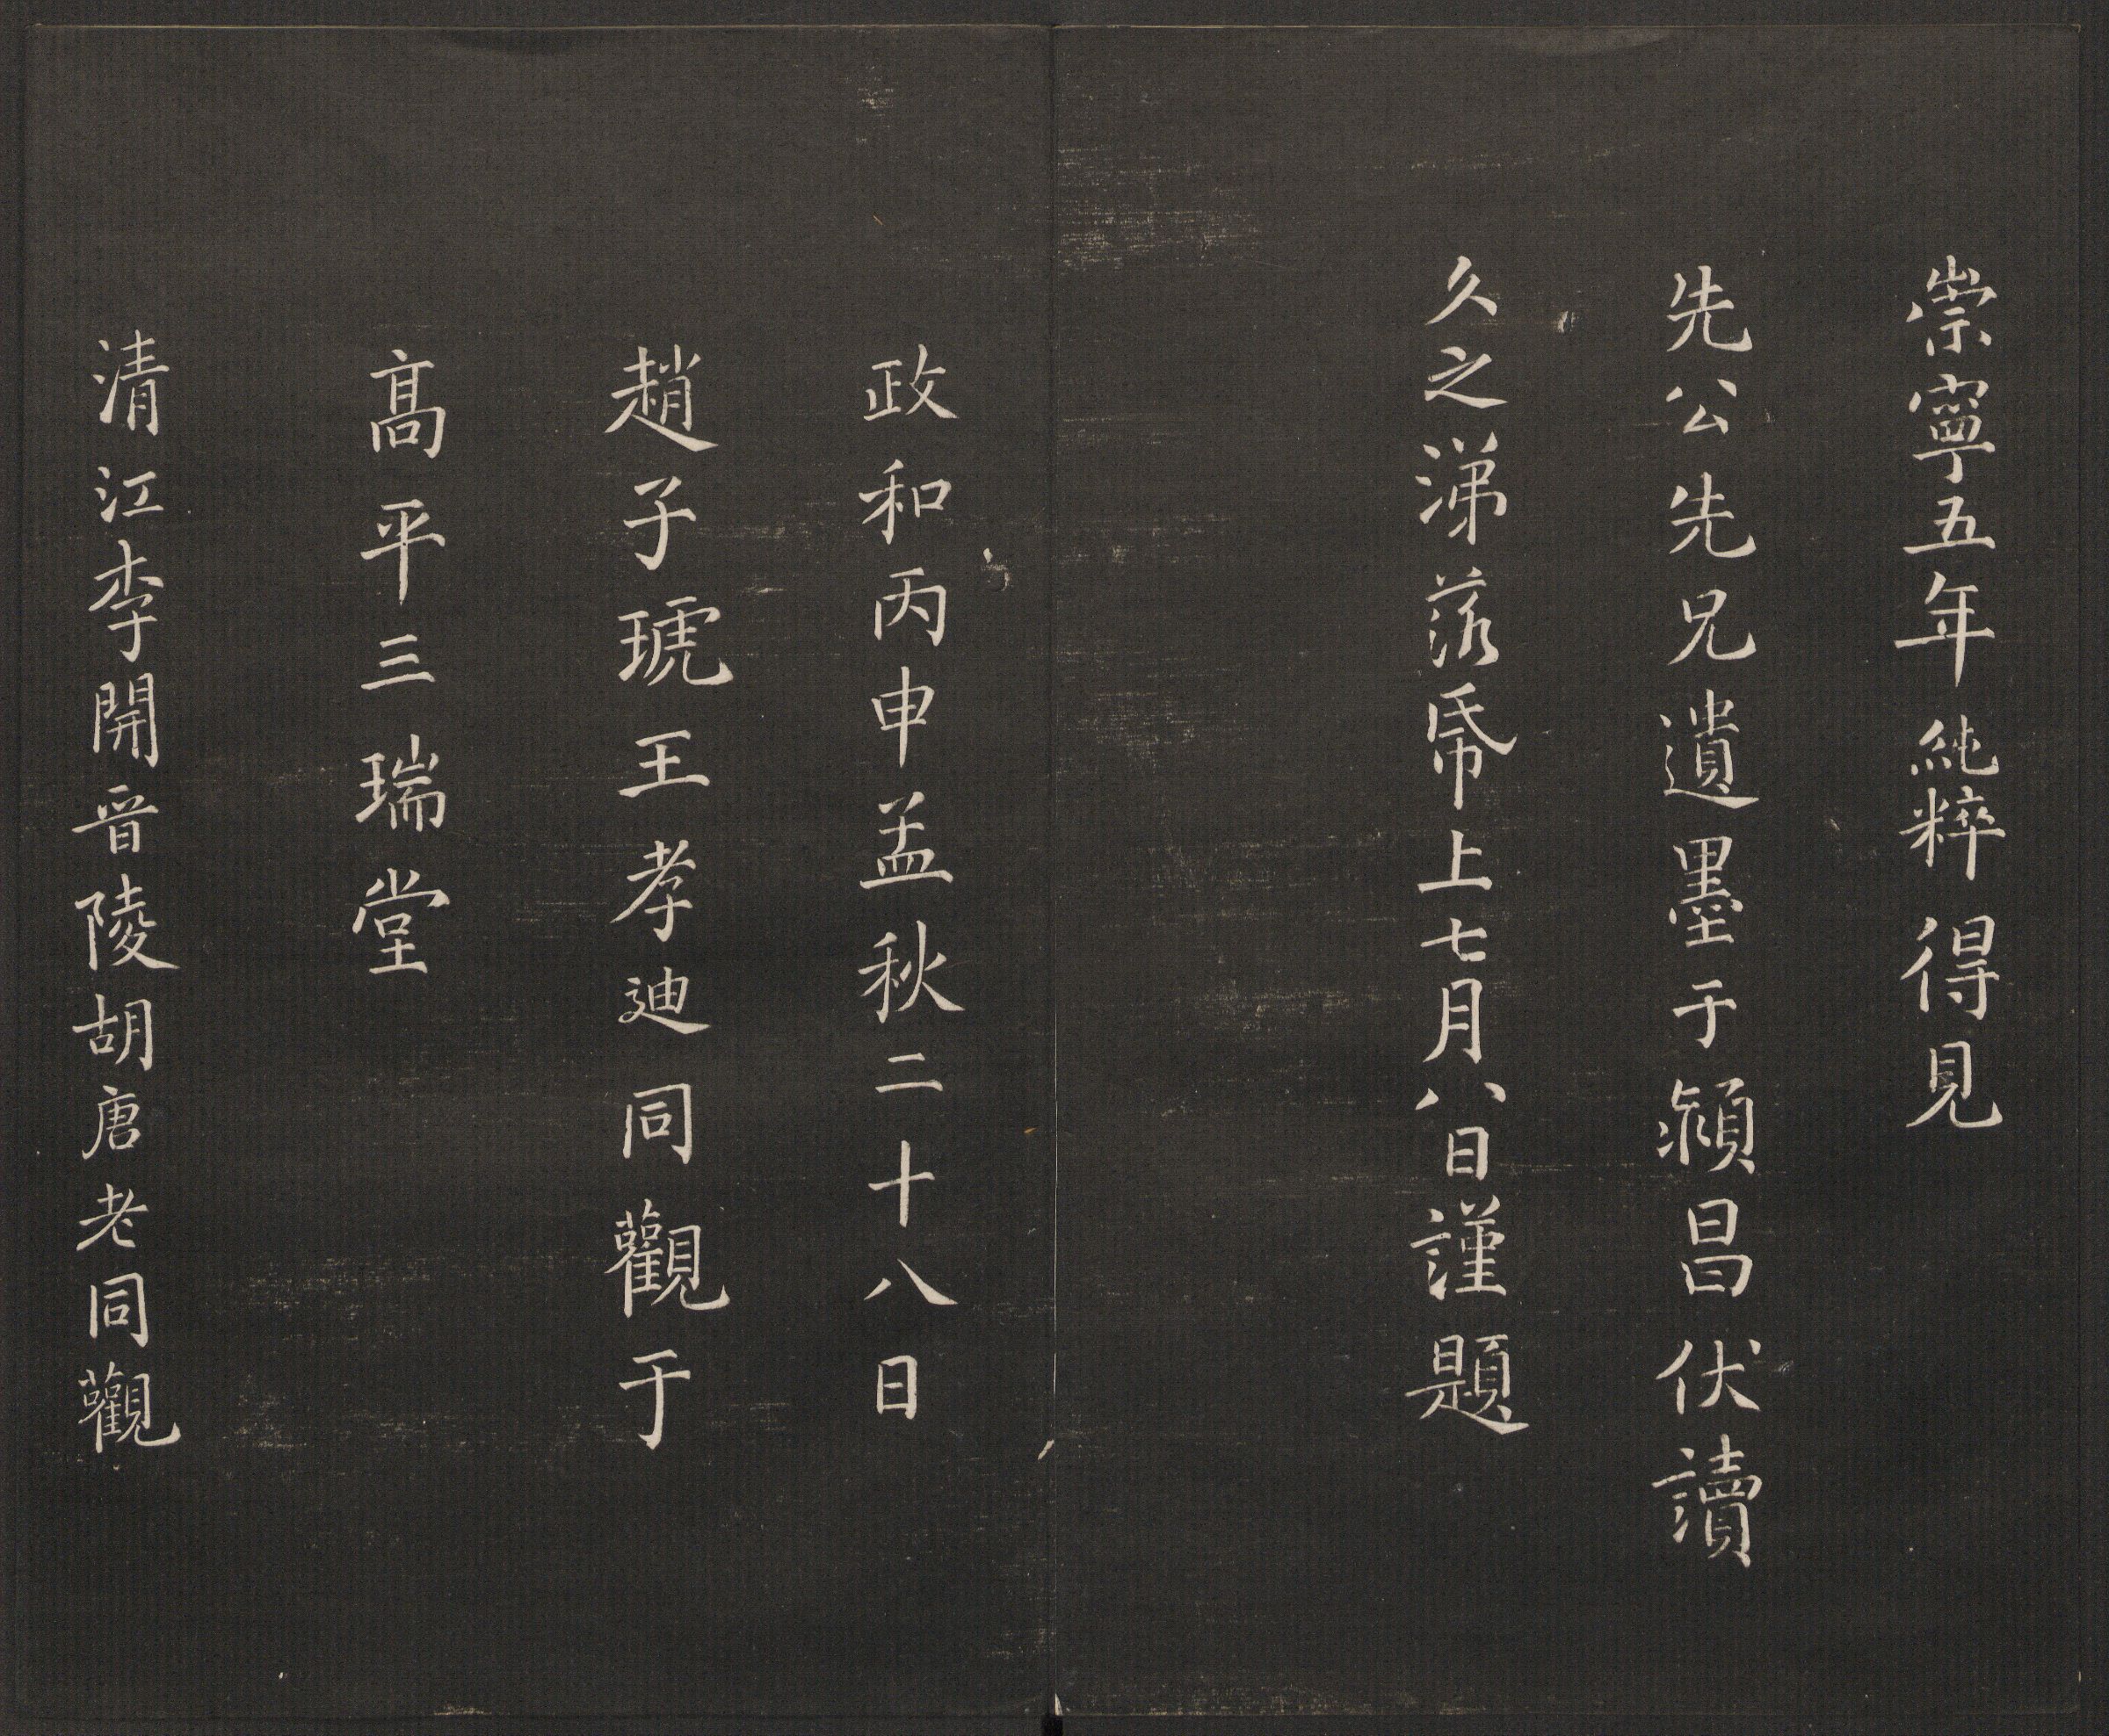 崇寧五年純粹得見
先公先兄遺墨于潁昌伏讀
久之涕落帋上七月八日謹題
政和丙申孟秋二十八日
趙子琥王孝迪同觀于
高平三瑞堂
清江李開晉陵胡唐老同觀